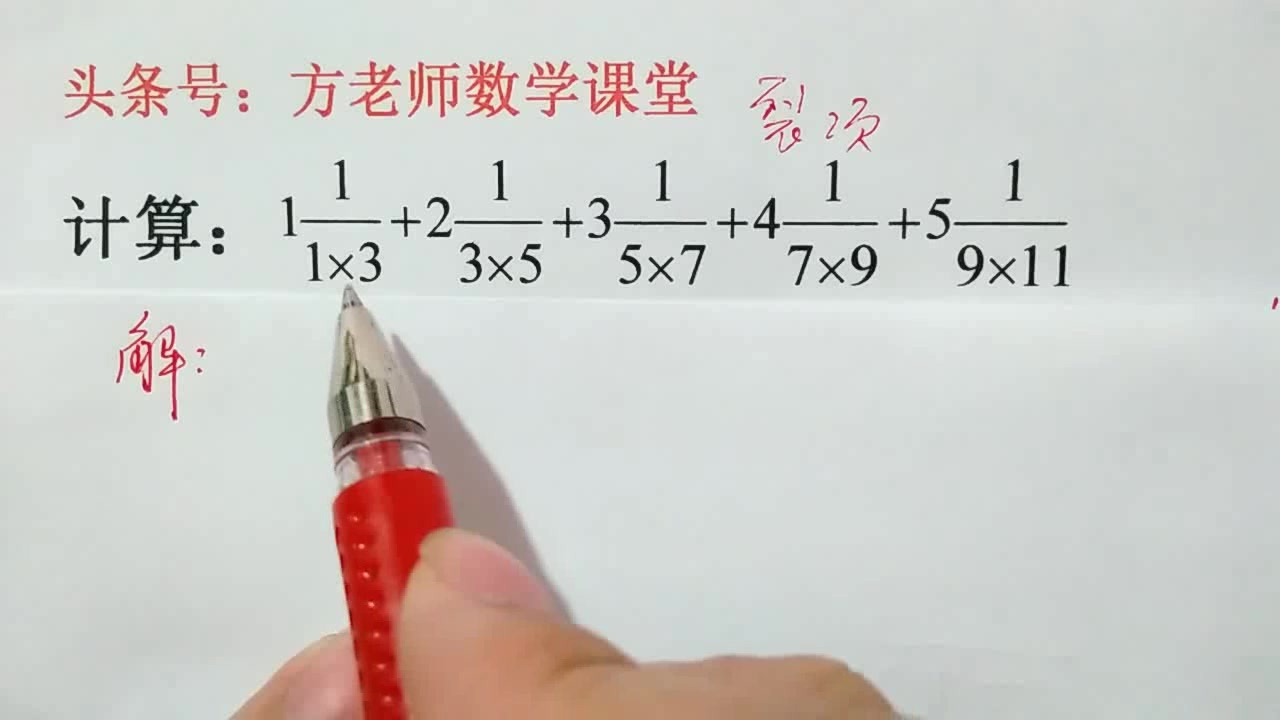 头条号：方老师数学课堂
裂项
计算：1 1/(1×3) +2 1/(3×5) +3 1/(5×7) +4 1/(7×9) +5 1/(9×11)
解：